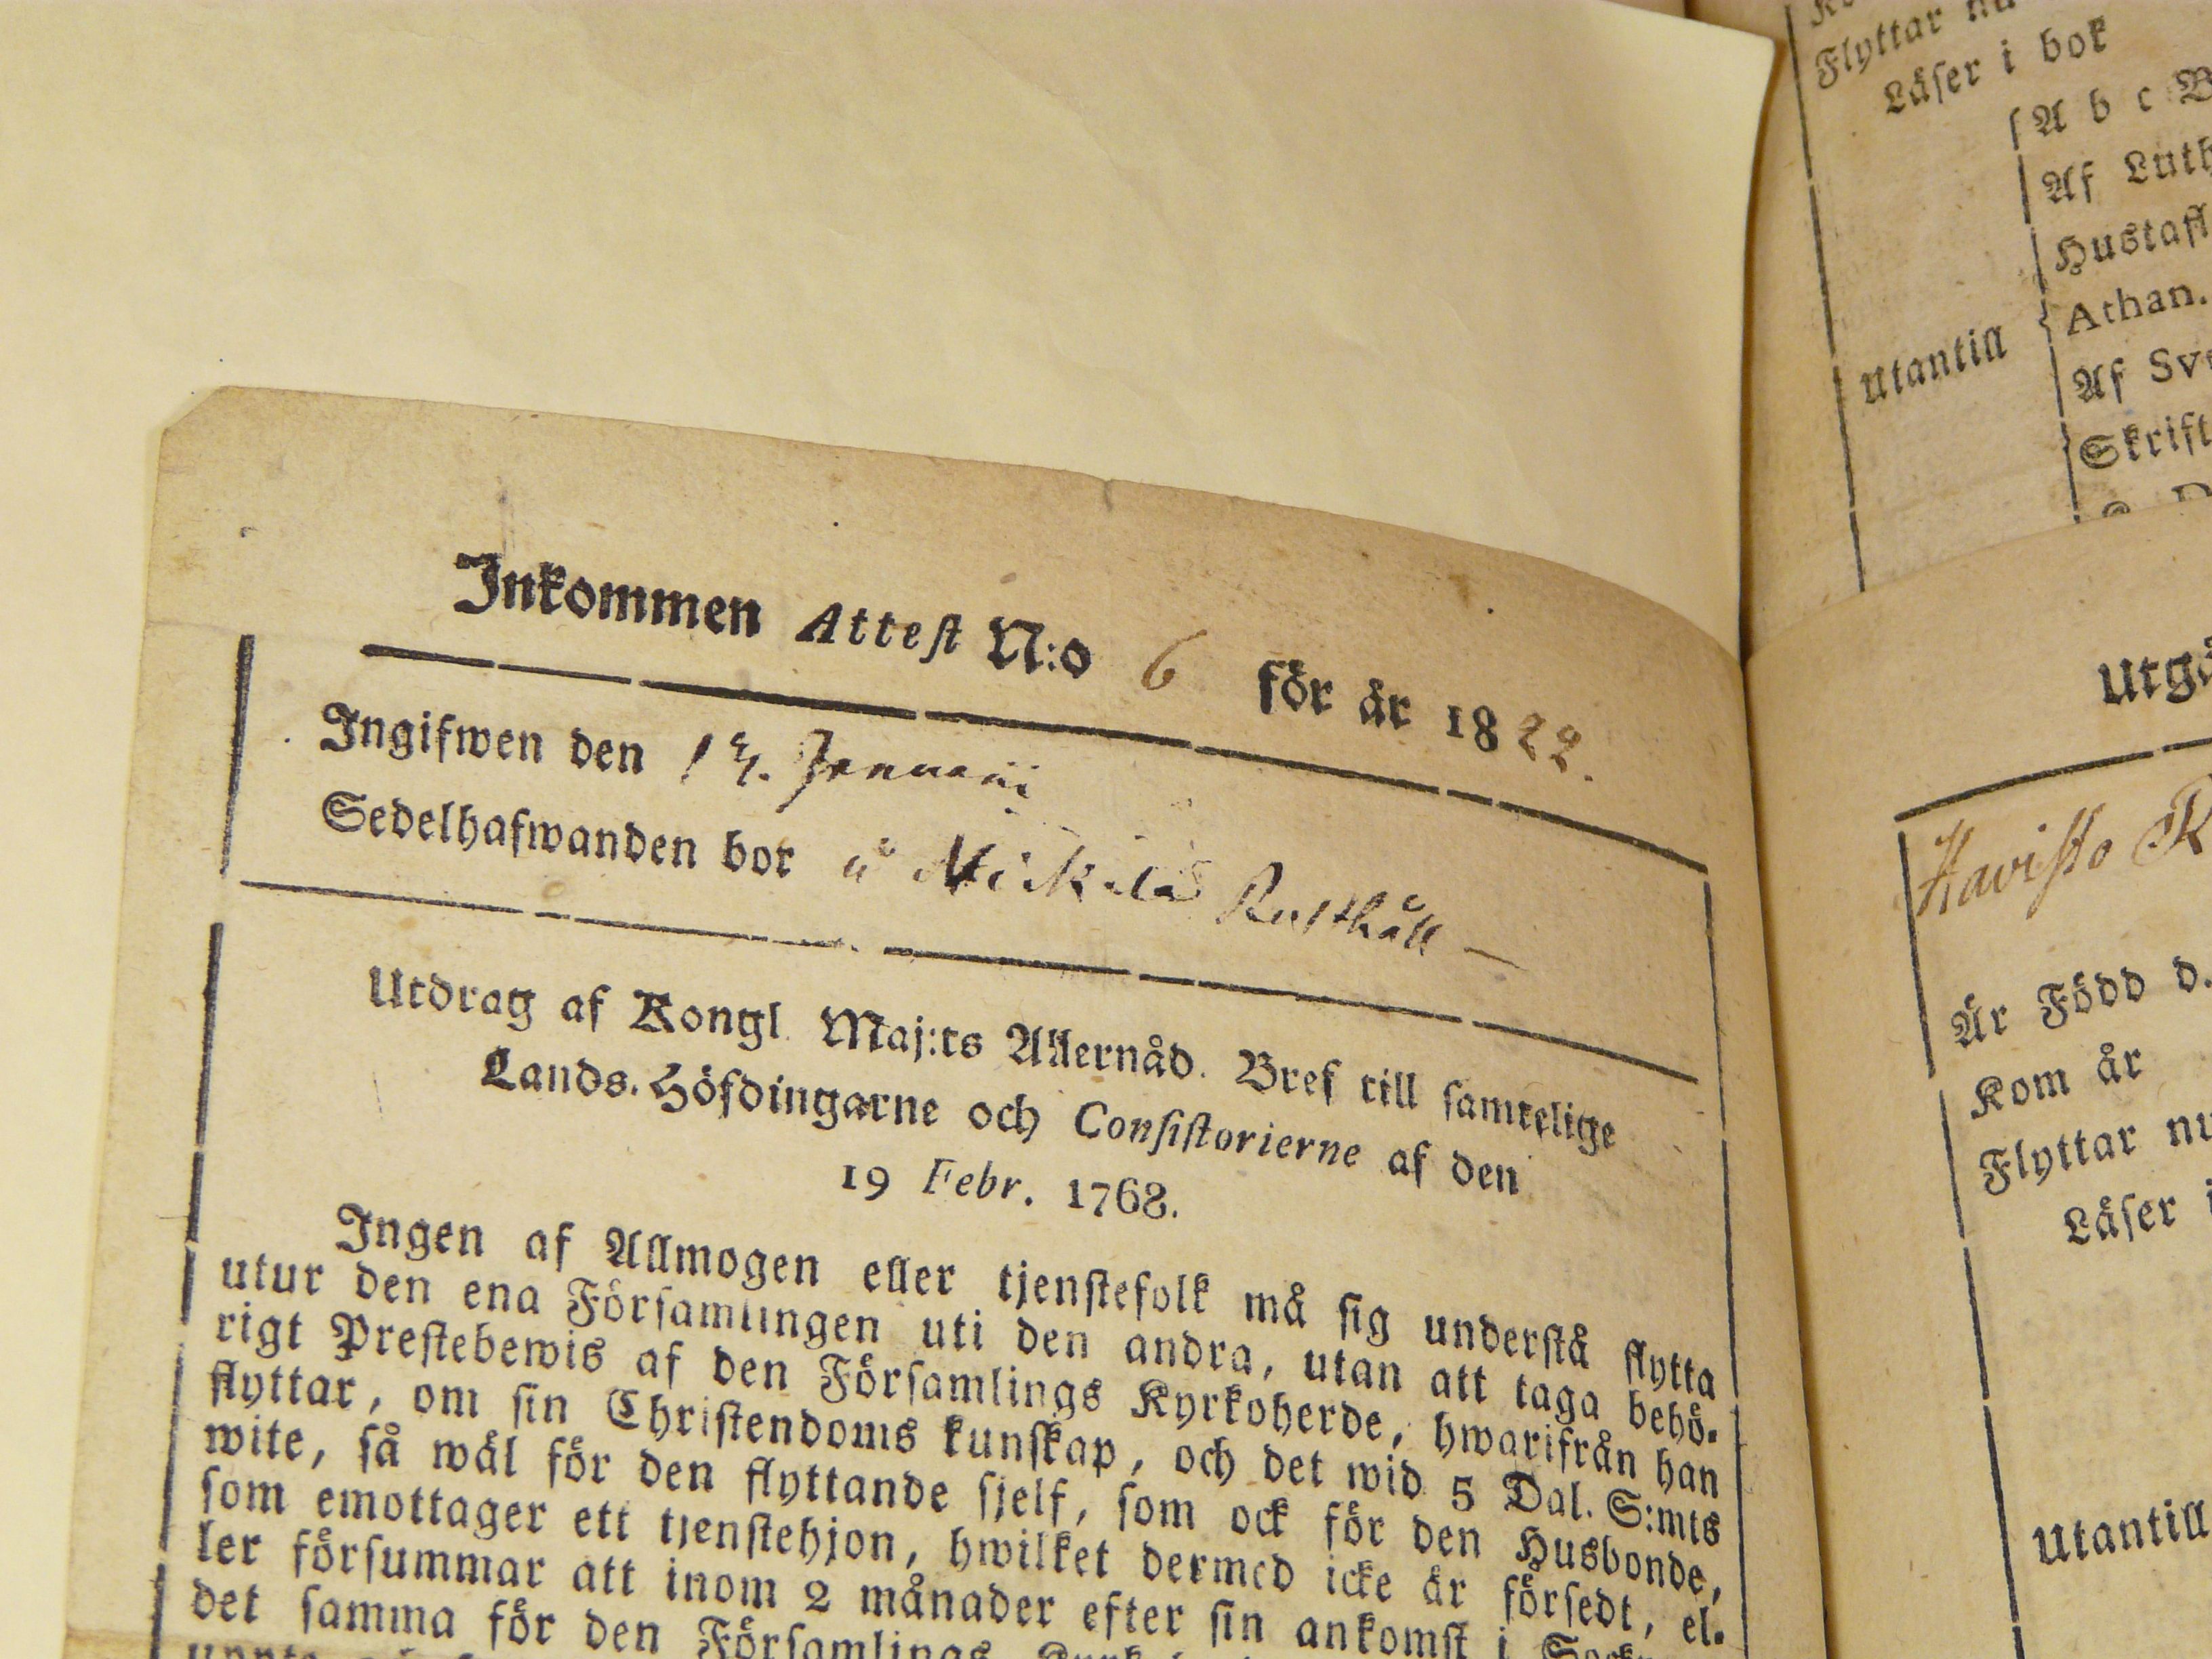 Inkommen Attest N:o 6 för år 1822.
Ingifwen den 14. Januarii
Sedelhafwanden bor å Mickilä Rusthåll —
Utdrag af Kongl. Maj:ts Allernåd. Bref till samtelige
Lands-Höfdingarne och Consistorierne af den
19 Febr. 1768.
Ingen af Allmogen eller tjenstefolk må sig understå flytta
utur den ena Församlingen uti den andra, utan att taga behö-
rigt Prestebewis af den Församlings Kyrkoherde, hwarifrån han
flyttar, om sin Christendoms kunskap, och det wid 5 Dal. S:mts
wite, så wäl för den flyttande sjelf, som ock för den Husbonde,
som emottager ett tjenstehjon, hwilket dermed icke är försedt, el-
ler försummar att inom 2 månader efter sin ankomst i
det samma för den Församlings
Flyttar nu
Läser i bok
A b c
Af Luth
Hustafl
Athan.
Utantill
Af Sv
Skrift
Utgå
Kavisto R
Är Född d.
Kom år
Flyttar nu
Läser i
Utantill